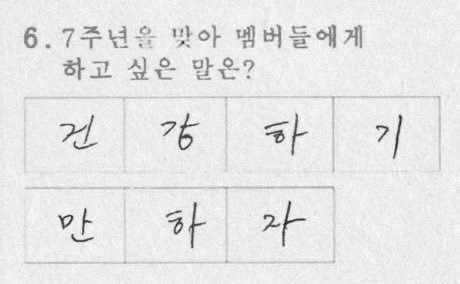 6. 7주년을 맞아 멤버들에게
하고 싶은 말은?
건강하기
만하자